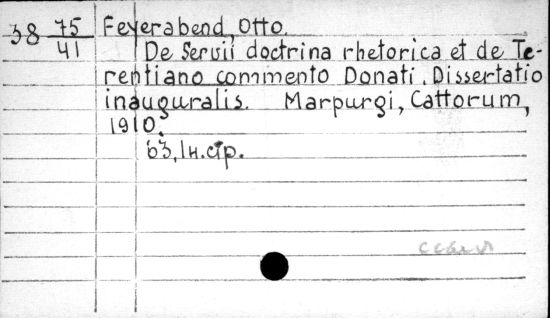 38 75/41 Feyerabend, Otto.
De Servii doctrina rhetorica et de Te-
rentiano commento Donati. Dissertatio
inauguralis. Marpurgi, Cattorum,
1910.
63, 1н. стр.